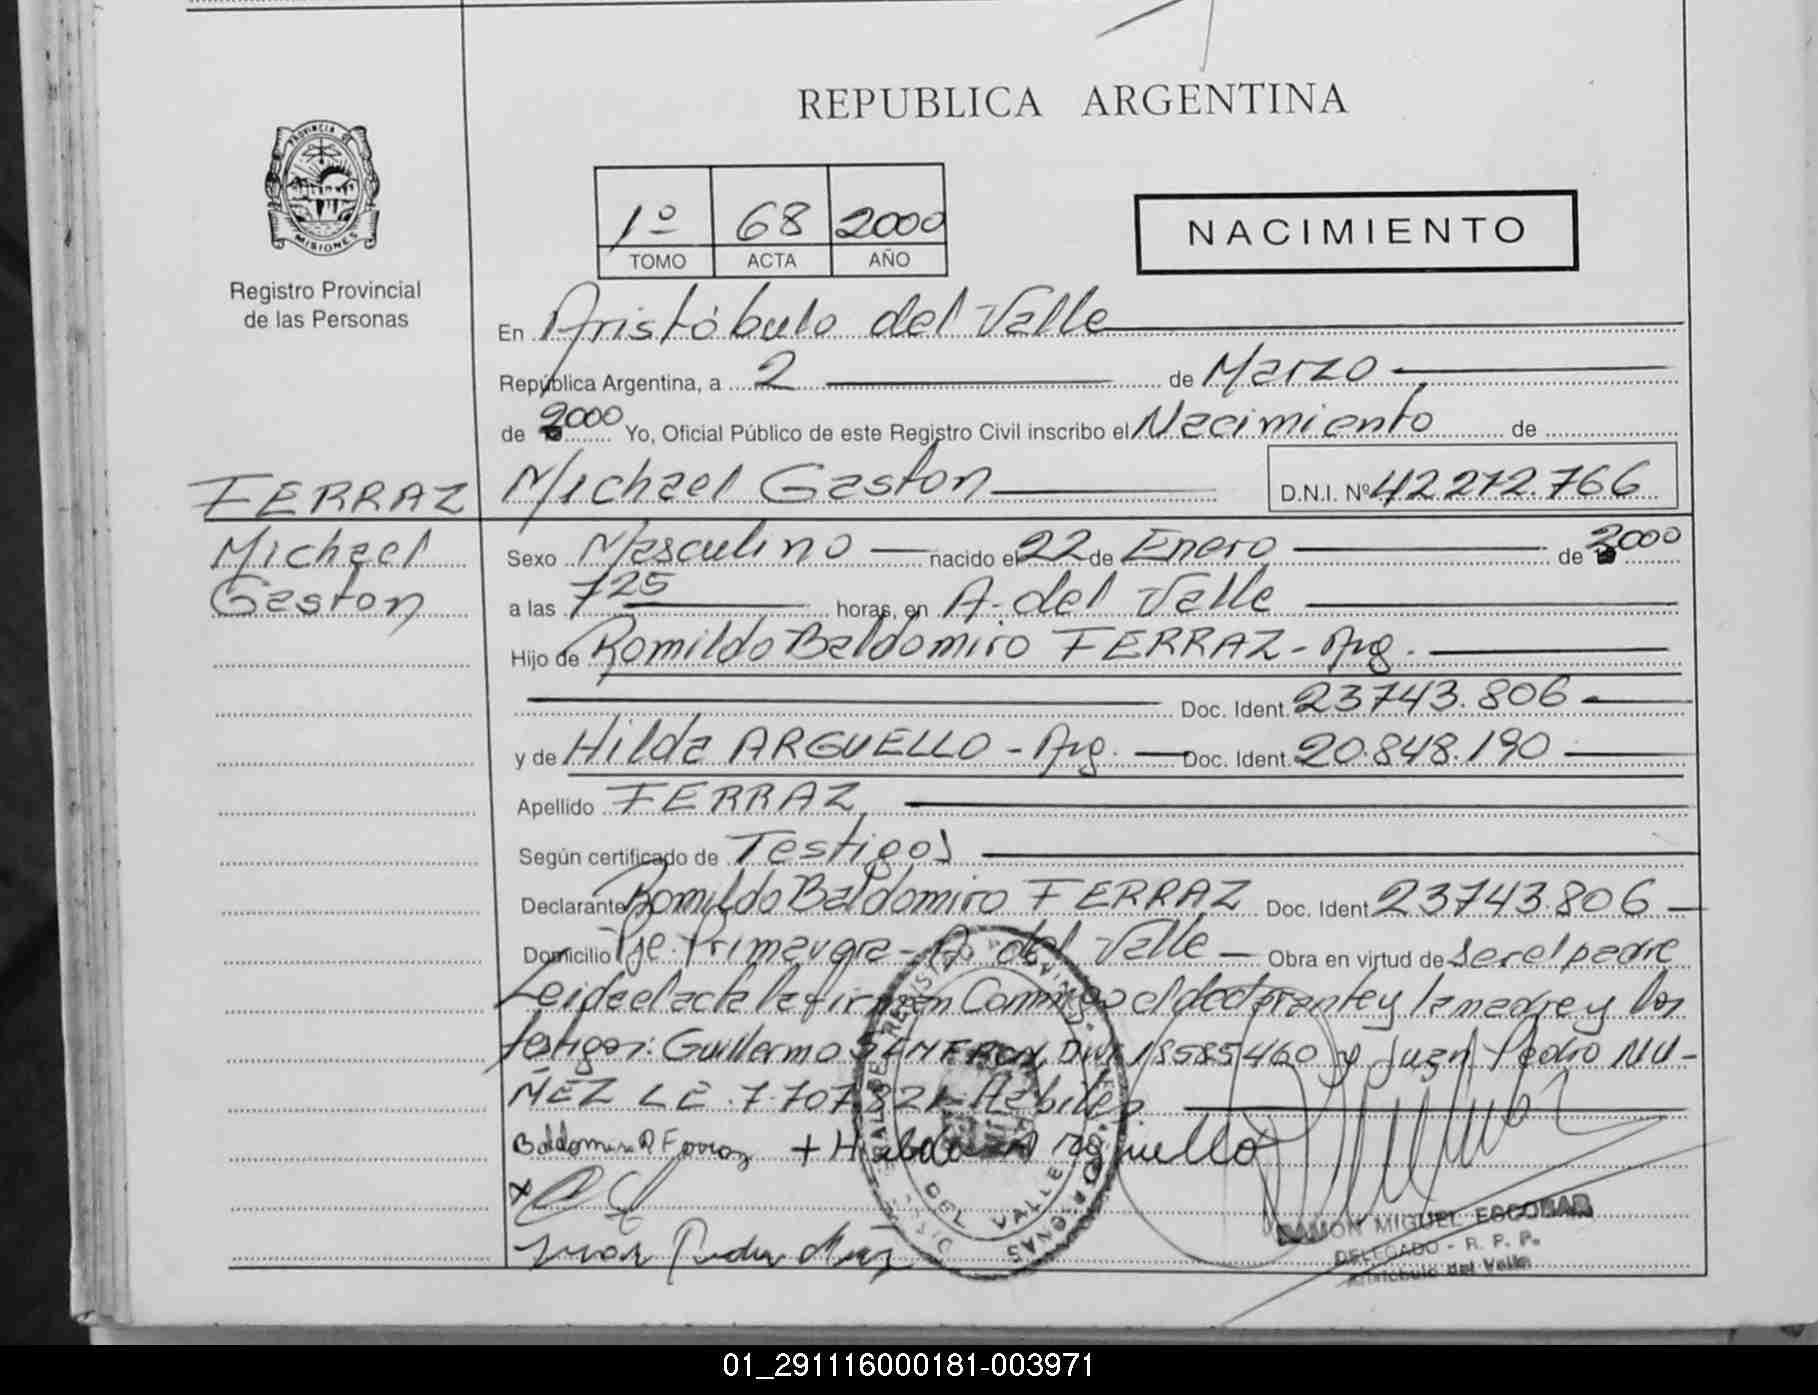 REPUBLICA ARGENTINA
PROVINCIA DE MISIONES
Registro Provincial
de las Personas
1º 68 2000
TOMO ACTA AÑO
NACIMIENTO
En Aristóbulo del Valle
República Argentina, a 2 de Marzo
de 2000 Yo, Oficial Público de este Registro Civil inscribo el Nacimiento de
FERRAZ Michael Gaston D.N.I. Nº 42272.766
Michael
Gaston
Sexo Masculino nacido el 22 de Enero de 2000
a las 725 horas, en A. del Valle
Hijo de Romildo Baldomiro FERRAZ - Arg.
Doc. Ident. 23743.806
y de Hilda ARGUELLO - Arg. Doc. Ident. 20.848.190
Apellido FERRAZ
Según certificado de Testigos
Declarante Romildo Baldomiro FERRAZ Doc. Ident. 23743.806
Domicilio Pje. Primavera - A. del Valle Obra en virtud de ser el padre
Leida el acta la firman Conmigo el declarante y la madre y los
testigos: Guillermo DNI 18585460 y Juan Pedro NU-
ÑEZ LE 7.707.821
Baldomiro R Ferraz + Arguello
Juan Pedro
DEL VALLE
RAMON MIGUEL ESCOBAR
DELEGADO - R. P. P.
Aristobulo del Valle
01_291116000181-003971